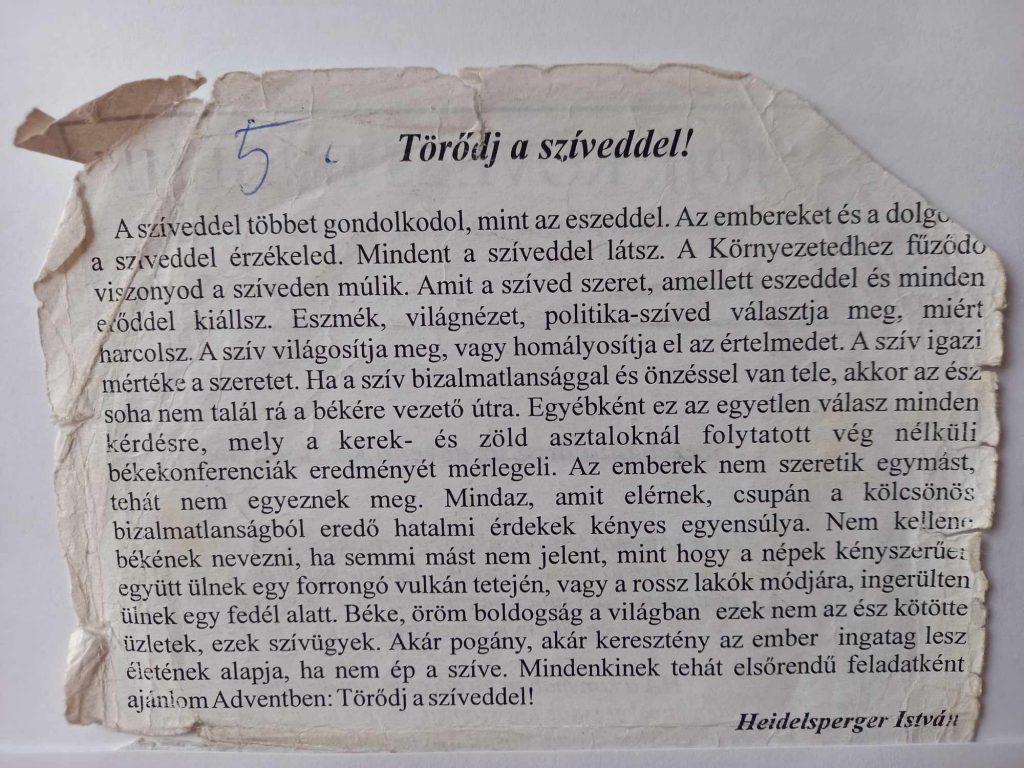 5
Törődj a szíveddel!
A szíveddel többet gondolkodol, mint az eszeddel. Az embereket és a dolgo
a szíveddel érzékeled. Mindent a szíveddel látsz. A Környezetedhez fűződő
viszonyod a szíveden múlik. Amit a szíved szeret, amellett eszeddel és minden
erőddel kiállsz. Eszmék, világnézet, politika-szíved választja meg, miért
harcolsz. A szív világosítja meg, vagy homályosítja el az értelmedet. A szív igazi
mértéke a szeretet. Ha a szív bizalmatlansággal és önzéssel van tele, akkor az ész
soha nem talál rá a békére vezető útra. Egyébként ez az egyetlen válasz minden
kérdésre, mely a kerek- és zöld asztaloknál folytatott vég nélküli
békekonferenciák eredményét mérlegeli. Az emberek nem szeretik egymást,
tehát nem egyeznek meg. Mindaz, amit elérnek, csupán a kölcsönös
bizalmatlanságból eredő hatalmi érdekek kényes egyensúlya. Nem kellene
békének nevezni, ha semmi mást nem jelent, mint hogy a népek kényszerűen
együtt ülnek egy forrongó vulkán tetején, vagy a rossz lakók módjára, ingerülten
ülnek egy fedél alatt. Béke, öröm boldogság a világban ezek nem az ész kötötte
üzletek, ezek szívügyek. Akár pogány, akár keresztény az ember ingatag lesz
életének alapja, ha nem ép a szíve. Mindenkinek tehát elsőrendű feladatként
ajánlom Adventben: Törődj a szíveddel!
Heidelsperger István